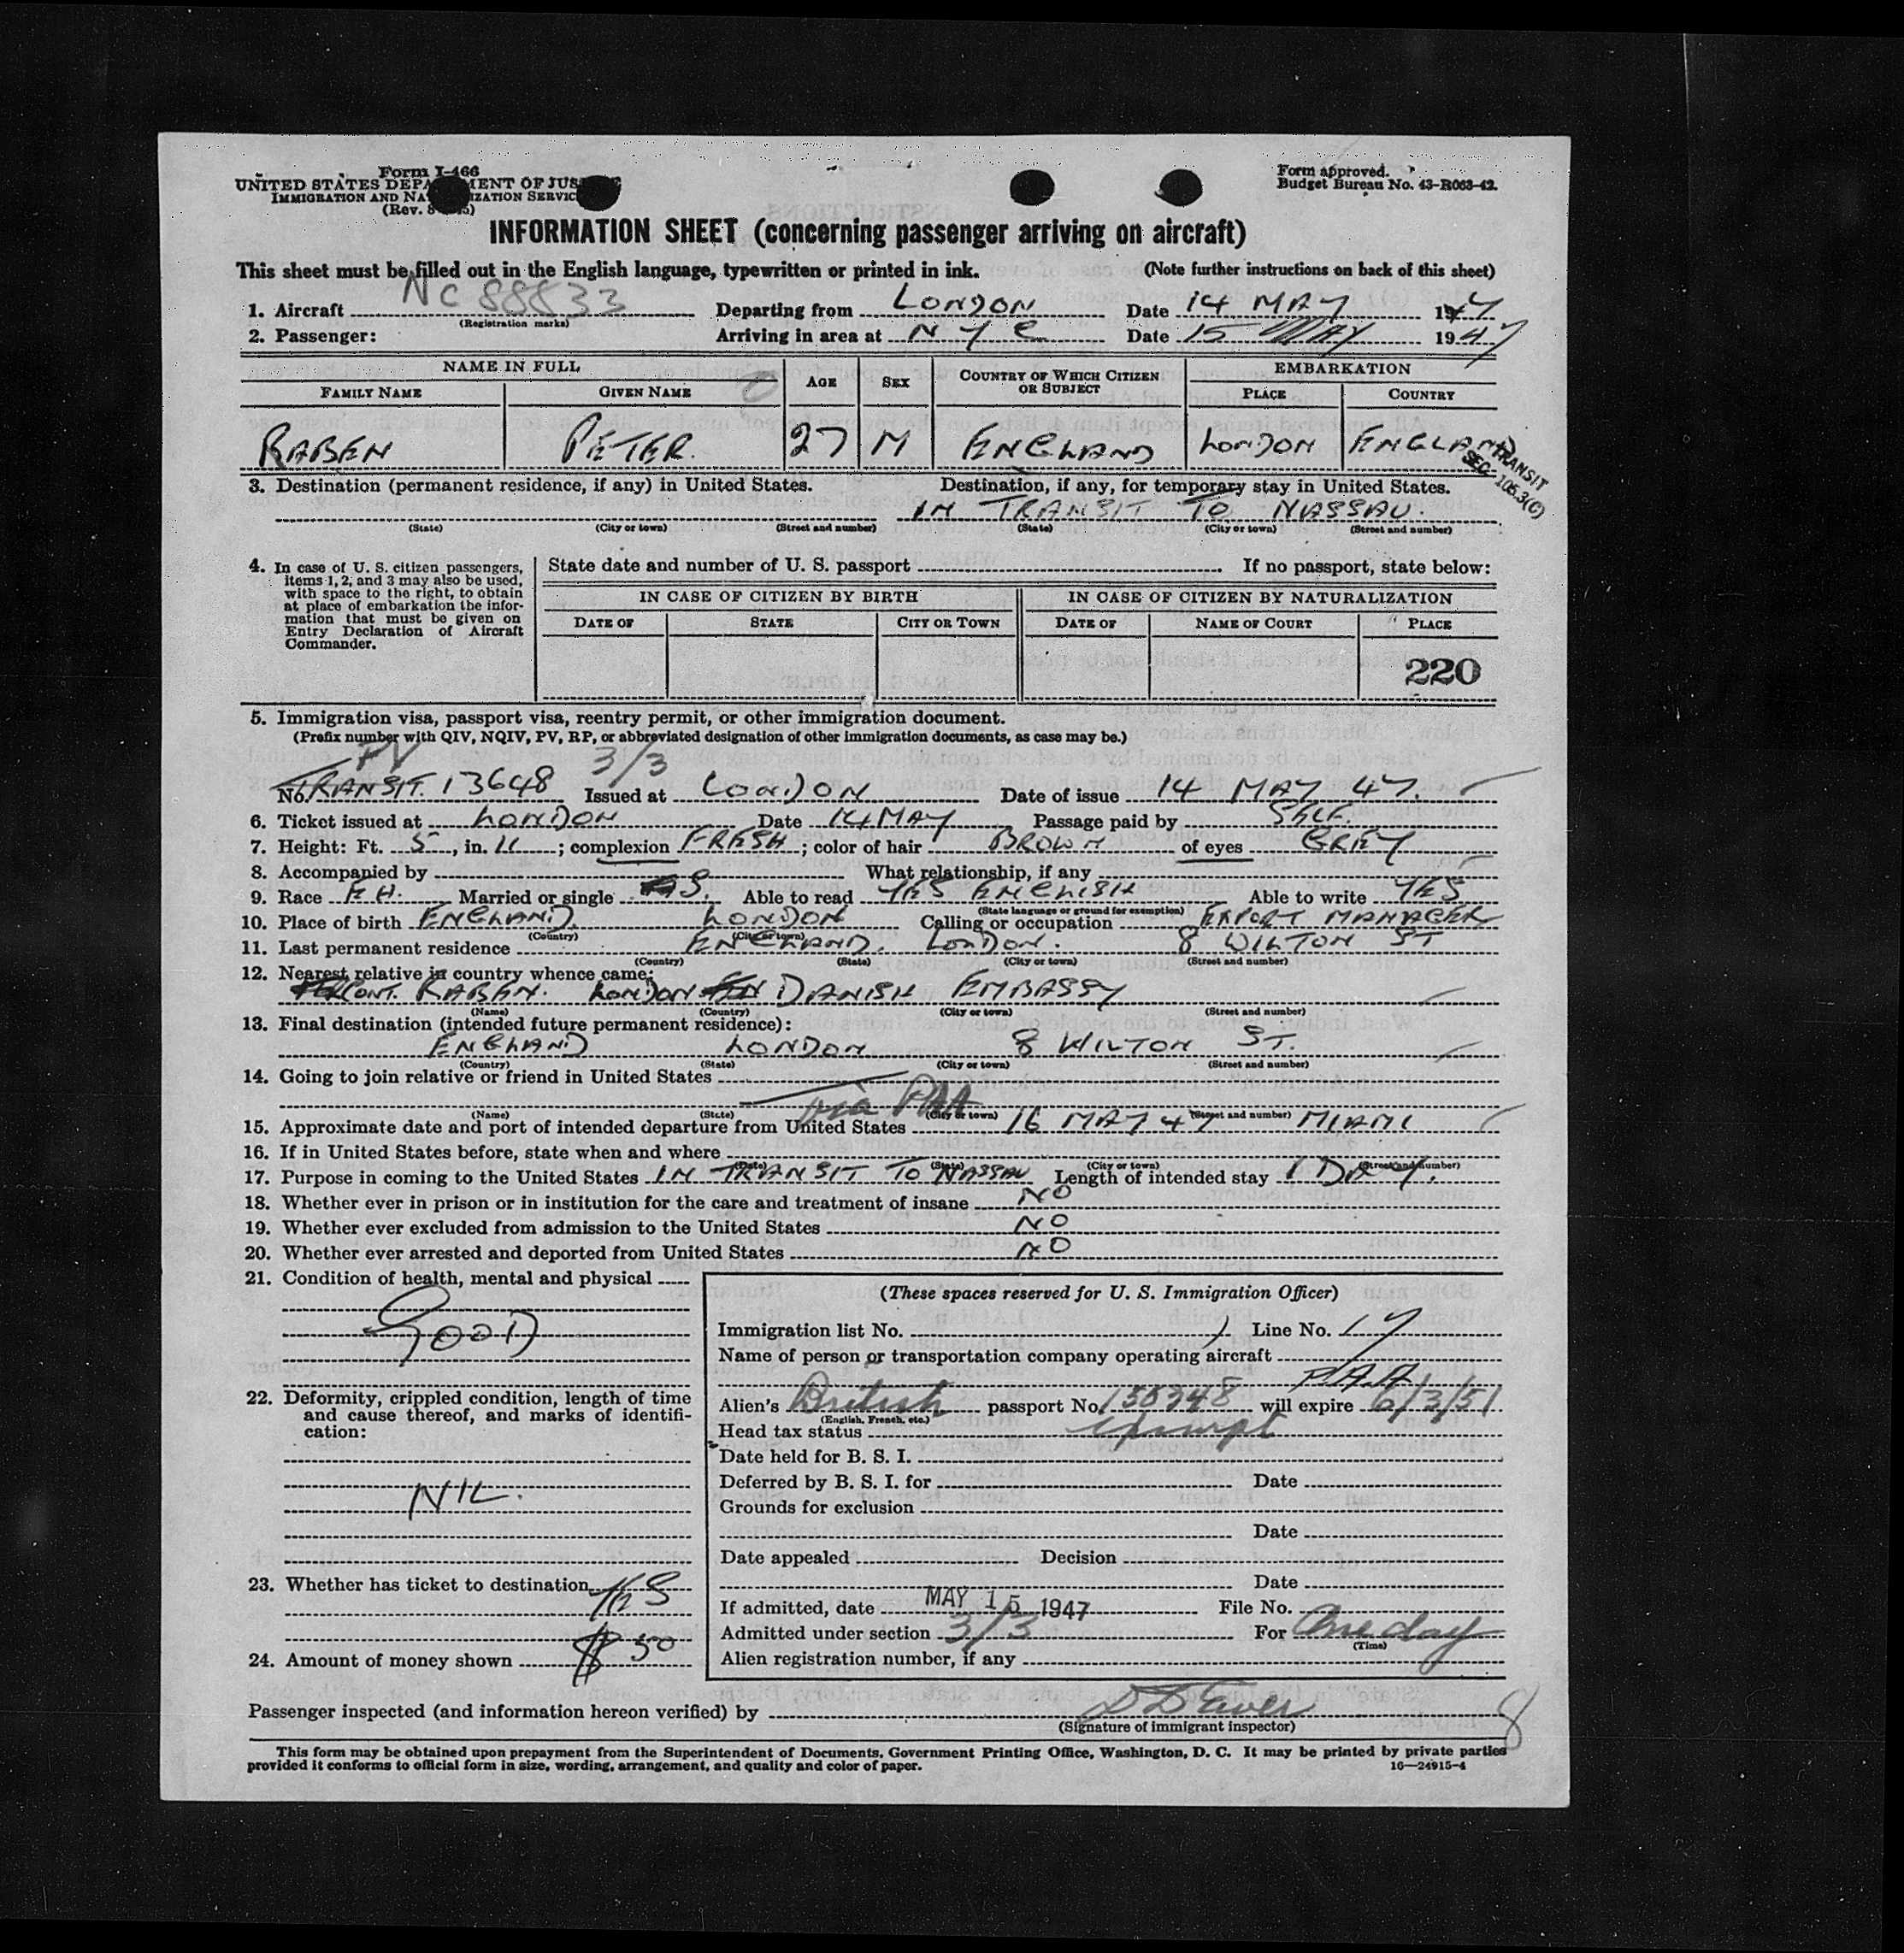 Form I-466
UNITED STATES DEPARTMENT OF JUSTICE
IMMIGRATION AND NATURALIZATION SERVICE
(Rev. 8
Form approved.
Budget Bureau No. 43-R063-42.
INFORMATION SHEET (concerning passenger arriving on aircraft)
This sheet must be filled out in the English language, typewritten or printed in ink. (Note further instructions on back of this sheet)
1. Aircraft NC 88833 Departing from LONDON Date 14 MAY 1947
(Registration marks)
2. Passenger: Arriving in area at NYC Date 15 MAY 1947
NAME IN FULL AGE SEX COUNTRY OF WHICH CITIZEN OR SUBJECT EMBARKATION
FAMILY NAME GIVEN NAME PLACE COUNTRY
RABEN PETER. 27 M ENGLAND LONDON ENGLAND
TRANSIT
SEC. 105.3(C)
3. Destination (permanent residence, if any) in United States. Destination, if any, for temporary stay in United States.
IN TRANSIT TO NASSAU.
(State) (City or town) (Street and number) (State) (City or town) (Street and number)
4. In case of U. S. citizen passengers, items 1, 2, and 3 may also be used, with space to the right, to obtain at place of embarkation the information that must be given on Entry Declaration of Aircraft Commander.
State date and number of U. S. passport If no passport, state below:
IN CASE OF CITIZEN BY BIRTH IN CASE OF CITIZEN BY NATURALIZATION
DATE OF STATE CITY OR TOWN DATE OF NAME OF COURT PLACE
220
5. Immigration visa, passport visa, reentry permit, or other immigration document.
(Prefix number with QIV, NQIV, PV, RP, or abbreviated designation of other immigration documents, as case may be.)
PV 3/3
No. TRANSIT. 13648 Issued at LONDON Date of issue 14 MAY 47.
6. Ticket issued at LONDON Date 14 MAY Passage paid by SELF.
7. Height: Ft. 5, in. 11; complexion FRESH; color of hair BROWN of eyes GREY
8. Accompanied by What relationship, if any
9. Race EH. Married or single S. Able to read YES ENGLISH Able to write YES
(State language or ground for exemption)
10. Place of birth ENGLAND. LONDON Calling or occupation EXPORT MANAGER
(Country) (City or town)
11. Last permanent residence ENGLAND. LONDON. 8 WILTON ST
(Country) (State) (City or town) (Street and number)
12. Nearest relative in country whence came:
CONT. RABEN. LONDON DANISH EMBASSY
(Name) (Country) (City or town) (Street and number)
13. Final destination (intended future permanent residence):
ENGLAND LONDON 8 WILTON ST.
(Country) (State) (City or town) (Street and number)
14. Going to join relative or friend in United States
via PAA
(Name) (State) (City or town) (Street and number)
15. Approximate date and port of intended departure from United States 16 MAY 47 MIAMI
16. If in United States before, state when and where
(Date) (State) (City or town) (Street and number)
17. Purpose in coming to the United States IN TRANSIT TO NASSAU Length of intended stay 1 DAY.
18. Whether ever in prison or in institution for the care and treatment of insane NO
19. Whether ever excluded from admission to the United States NO
20. Whether ever arrested and deported from United States NO
21. Condition of health, mental and physical
GOOD
22. Deformity, crippled condition, length of time and cause thereof, and marks of identification:
NIL.
23. Whether has ticket to destination YES
24. Amount of money shown $ 50
(These spaces reserved for U. S. Immigration Officer)
Immigration list No. Line No. 17
Name of person or transportation company operating aircraft
P.A.A
Alien's British passport No. 158348 will expire 6/3/51
(English, French, etc.)
Head tax status exempt
Date held for B. S. I.
Deferred by B. S. I. for Date
Grounds for exclusion
Date
Date appealed Decision
Date
If admitted, date MAY 15 1947 File No.
Admitted under section 3/3 For One day
(Time)
Alien registration number, if any
Passenger inspected (and information hereon verified) by
(Signature of immigrant inspector)
8
This form may be obtained upon prepayment from the Superintendent of Documents, Government Printing Office, Washington, D. C. It may be printed by private parties
provided it conforms to official form in size, wording, arrangement, and quality and color of paper. 16—24915-4